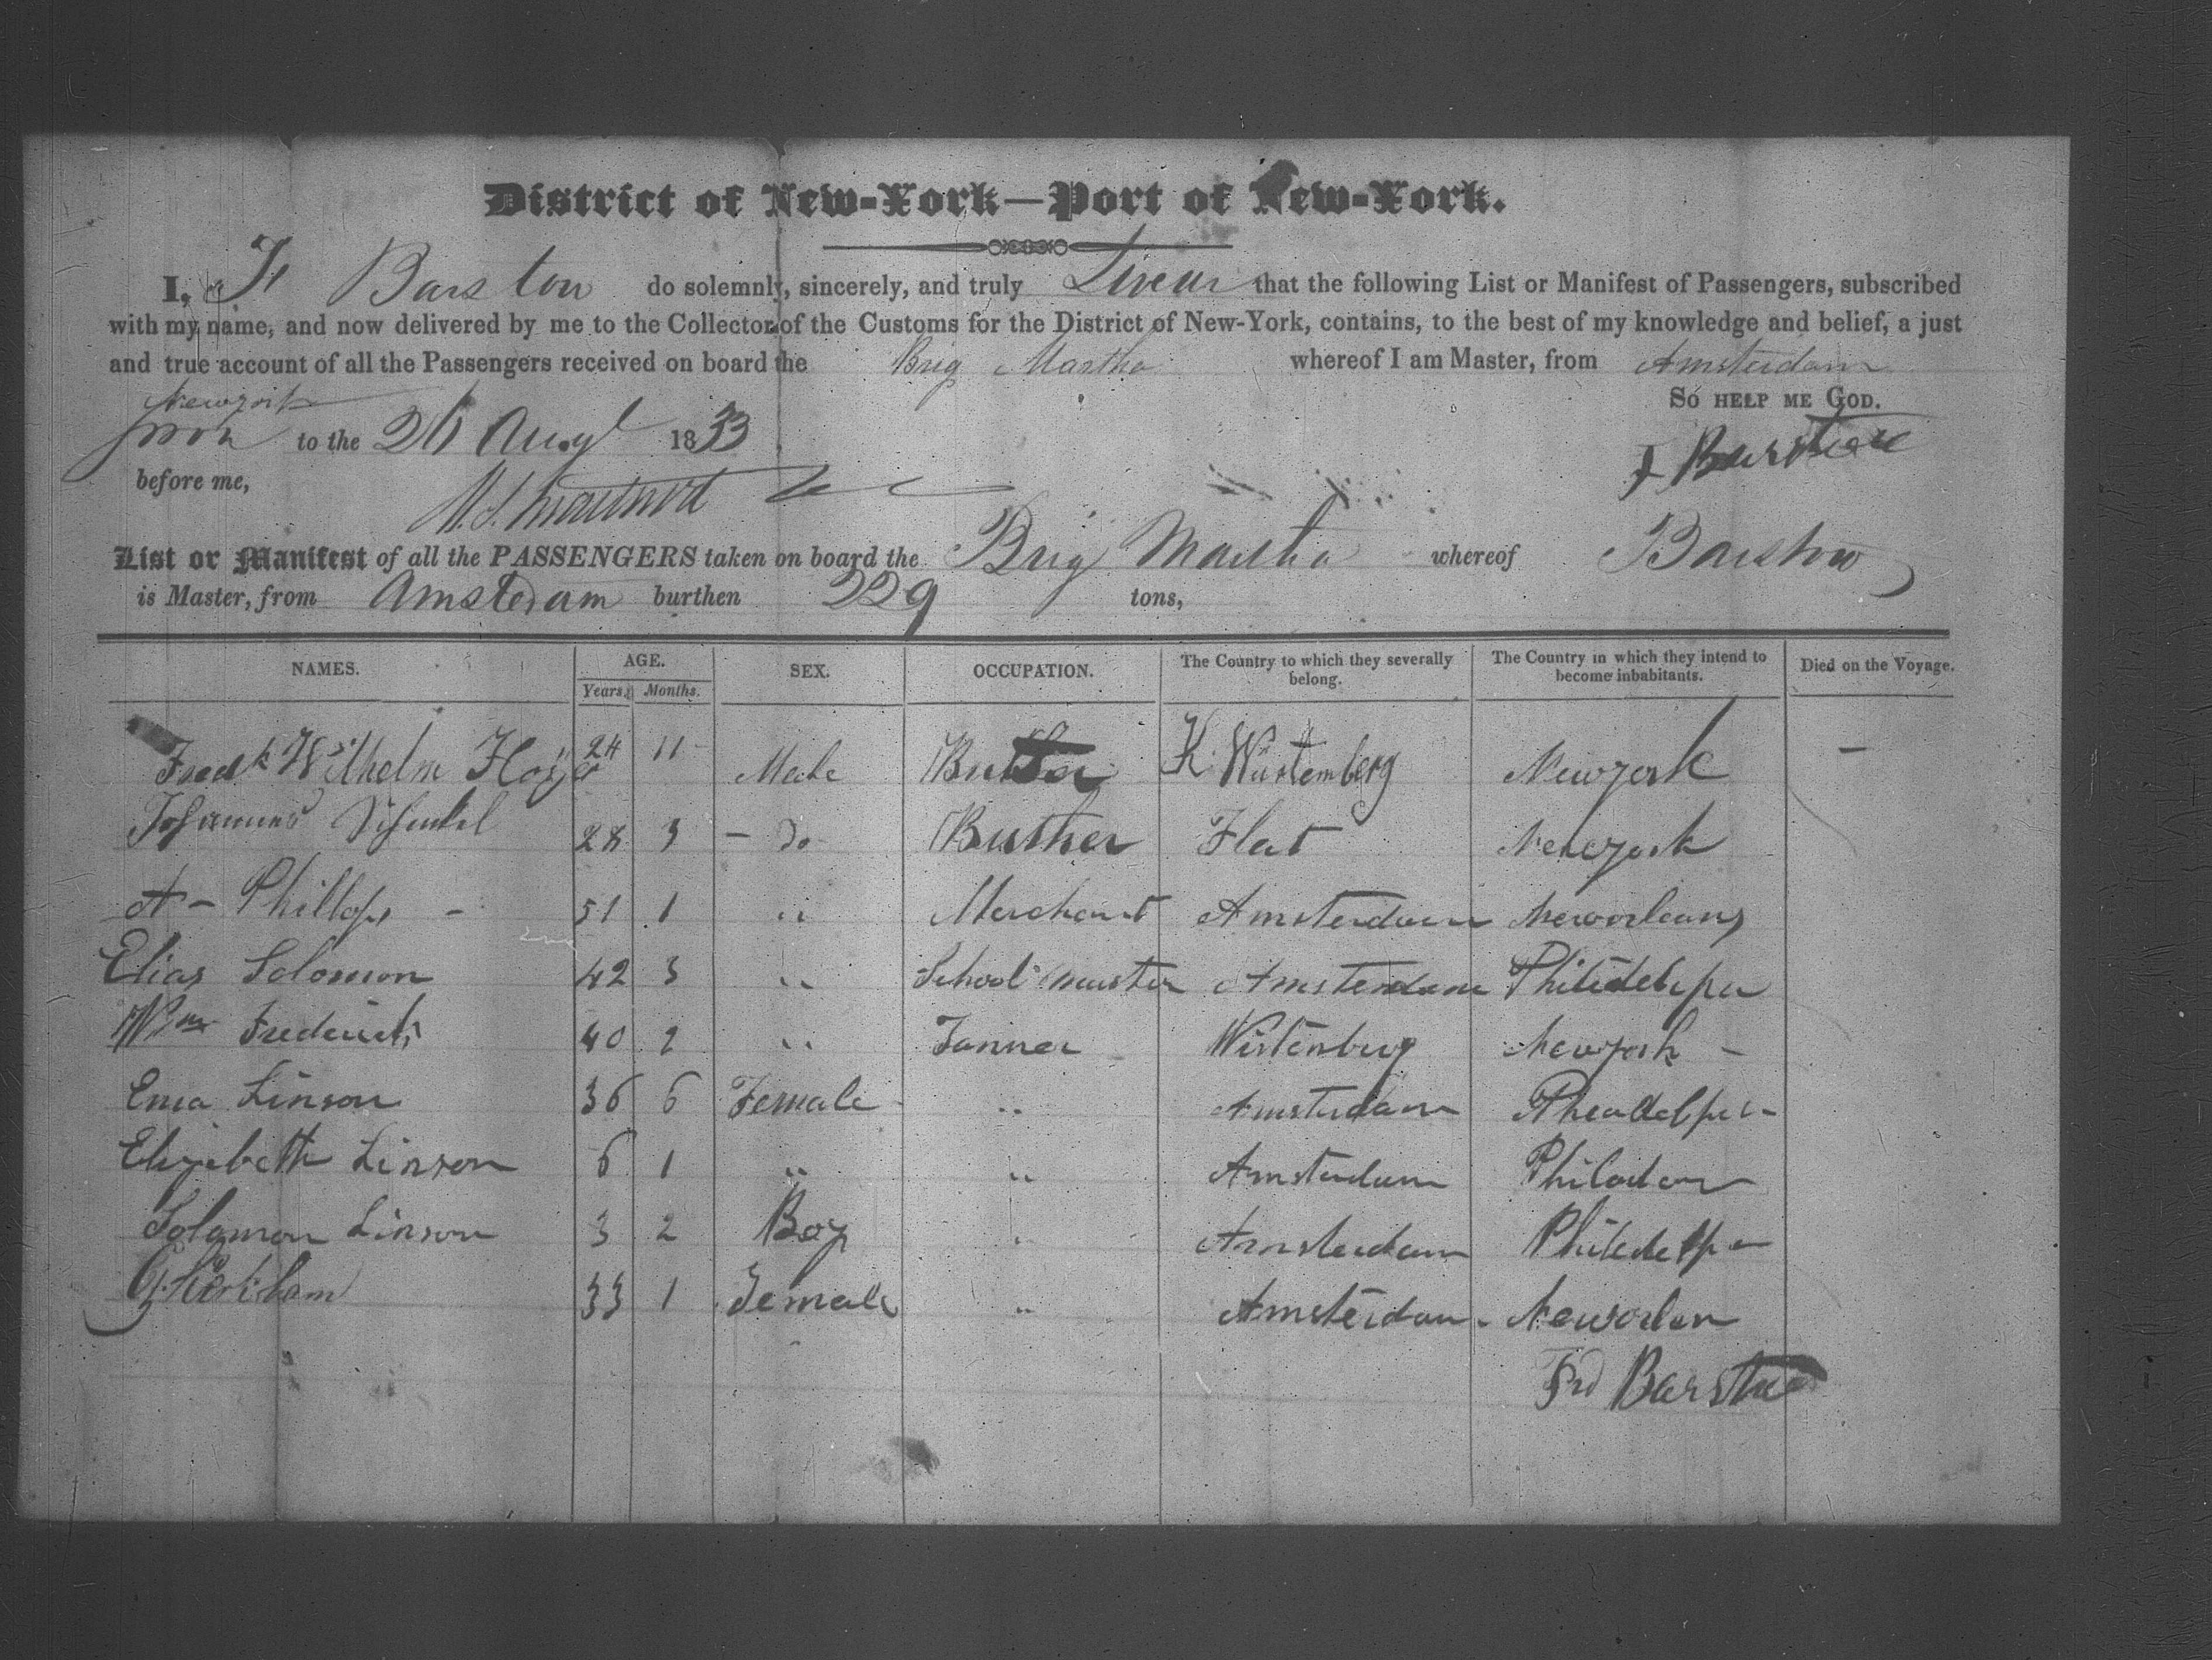 District of New-York—Port of New-York.
I, F Barstow do solemnly, sincerely, and truly Swear that the following List or Manifest of Passengers, subscribed
with my name, and now delivered by me to the Collector of the Customs for the District of New-York, contains, to the best of my knowledge and belief, a just
and true account of all the Passengers received on board the Brig Martha whereof I am Master, from Amsterdam
Newyork So help me God.
Sworn to the 26 Augt 1833
F Barstow
before me,
List or Manifest of all the PASSENGERS taken on board the Brig Martha whereof Barstow
is Master, from Amsterdam burthen 229 tons,
NAMES. AGE. Years. Months. SEX. OCCUPATION. The Country to which they severally belong. The Country in which they intend to become inhabitants. Died on the Voyage.
Fredk Wilhelm 24 11 Male K. Würtemberg Newyork —
Johannes 28 3 — Do Buther Flat Newyork
A — Phillops — 51 1 " Merchant Amsterdam Neworleans
Elias Solomon 42 3 " School master Amsterdam Philedelpia
Wm Fredericks 40 2 " Tanner Wirtenburg Newyork —
Ema Linson 36 6 Female " Amsterdam Pheadelpia
Elizebeth Linson 6 1 " " Amsterdam
Solomon Linson 3 2 Boy " Amsterdam Philedelpa
33 1 Female " Amsterdam Neworlean
Frd Barstow